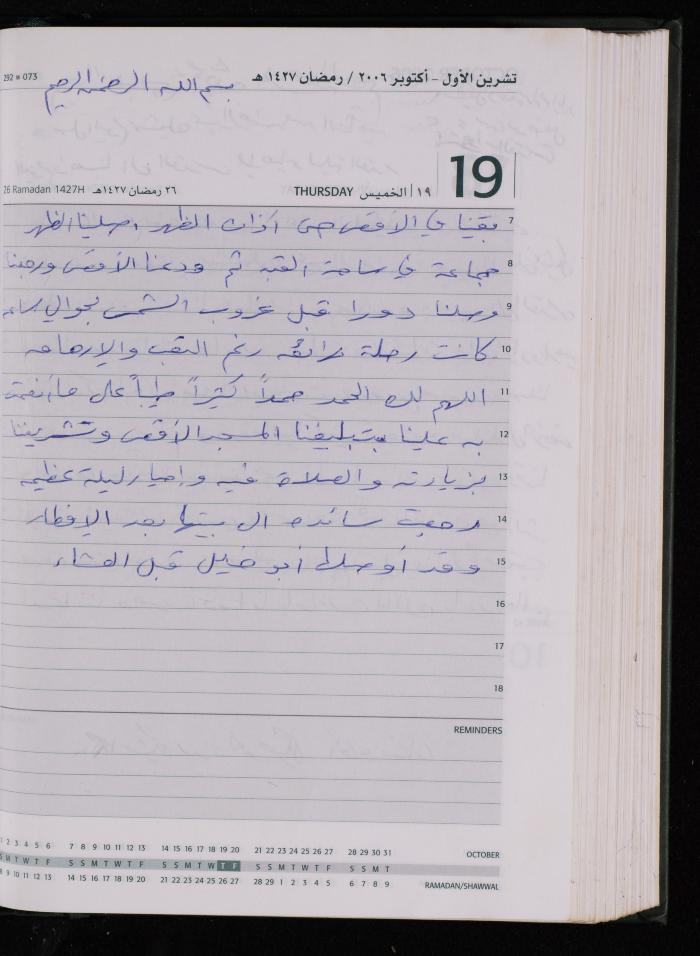 تشرين الأول - أكتوبر ٢٠٠٦ / رمضان ١٤٢٧ هـ
292 = 073
بسم الله الرحمن الرحيم
19
١٩ | الخميس THURSDAY
٢٦ رمضان ١٤٢٧هـ 26 Ramadan 1427H
7 بقينا في الأقصى حتى أذان الظهر وصلينا الظهر
8 جماعة في ساحة القبة ثم ودعنا الأقصى ورجعنا
9 وصلنا دورا قبل غروب الشمس بحوالي ساعة
10 كانت رحلة رائعة رغم التعب والإرهاق
11 اللهم لك الحمد حمداً كثيراً طيباً على ما أنعمت
12 به علينا بتبليغنا المسجد الأقصى وتشريفنا
13 بزيارته والصلاة فيه وإحياء ليلة عظيمة
14 رجعت سائده الى بيتها بعد الإفطار
15 وقد أوصلها أبو خليل قبل العشاء
16
17
18
REMINDERS
1 2 3 4 5 6 7 8 9 10 11 12 13 14 15 16 17 18 19 20 21 22 23 24 25 26 27 28 29 30 31 OCTOBER
S M T W T F S S M T W T F S S M T W T F S S M T W T F S S M T
8 9 10 11 12 13 14 15 16 17 18 19 20 21 22 23 24 25 26 27 28 29 1 2 3 4 5 6 7 8 9 RAMADAN/SHAWWAL